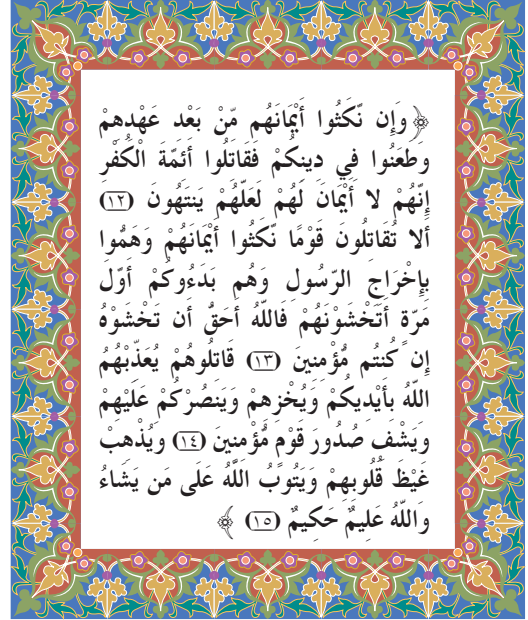 ﴿ وَإِن نَّكَثُوا أَيْمَانَهُم مِّنْ بَعْد عَهْدهمْ
وطَعَنُوا فِي دينكُمْ فَقَاتلُوا أَئمَّةَ الْكُفْر
إِنَّهُمْ لا أَيْمَانَ لَهُمْ لَعَلَّهُمْ يَنتَهُونَ (١٢)
أَلا تُقَاتلُون قَوْمًا نَّكَثُوا أَيْمَانَهُمْ وَهَمُّوا
بإِخْرَاجِ الرّسُول وَهُم بَدَءُوكُمْ أَوّل
مَرّة أَتَخْشَوْنَهُمْ فَاللَّهُ أَحَقُّ أَن تَخْشَوْهُ
إِن كُنتُم مُّؤْمنينَ (١٣) قَاتلُوهُمْ يُعَذّبْهُمُ
اللَّهُ بأَيْديكُمْ وَيُخْزهمْ وَيَنصُرْكُمْ عَلَيْهمْ
ويَشْف صُدُورَ قَوْم مُّؤْمنينَ (١٤) ويُذْهبْ
غَيْظَ قُلُوبهمْ وَيَتُوبُ اللَّهُ عَلَى مَن يَشَاءُ
واللَّهُ عَليمٌ حَكيمٌ (١٥) ﴾